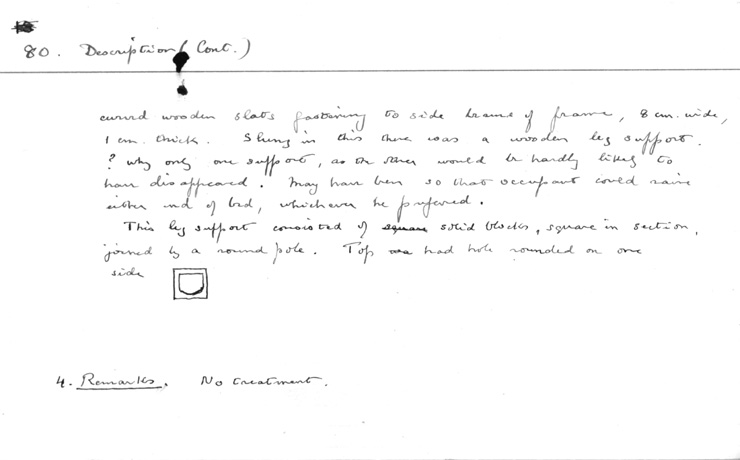 80. Description (Cont.)
curved wooden slats fastening to side beams of frame, 8 cm. wide,
1 cm. thick. Slung in this there was a wooden leg support.
? why only one support, as the other would be hardly likely to
have disappeared. May have been so that occupant could raise
either end of bed, whichever he prefered.
This leg support consisted of square solid blocks, square in section,
joined by a round pole. Top had hole rounded on one
side
4. Remarks. No treatment.